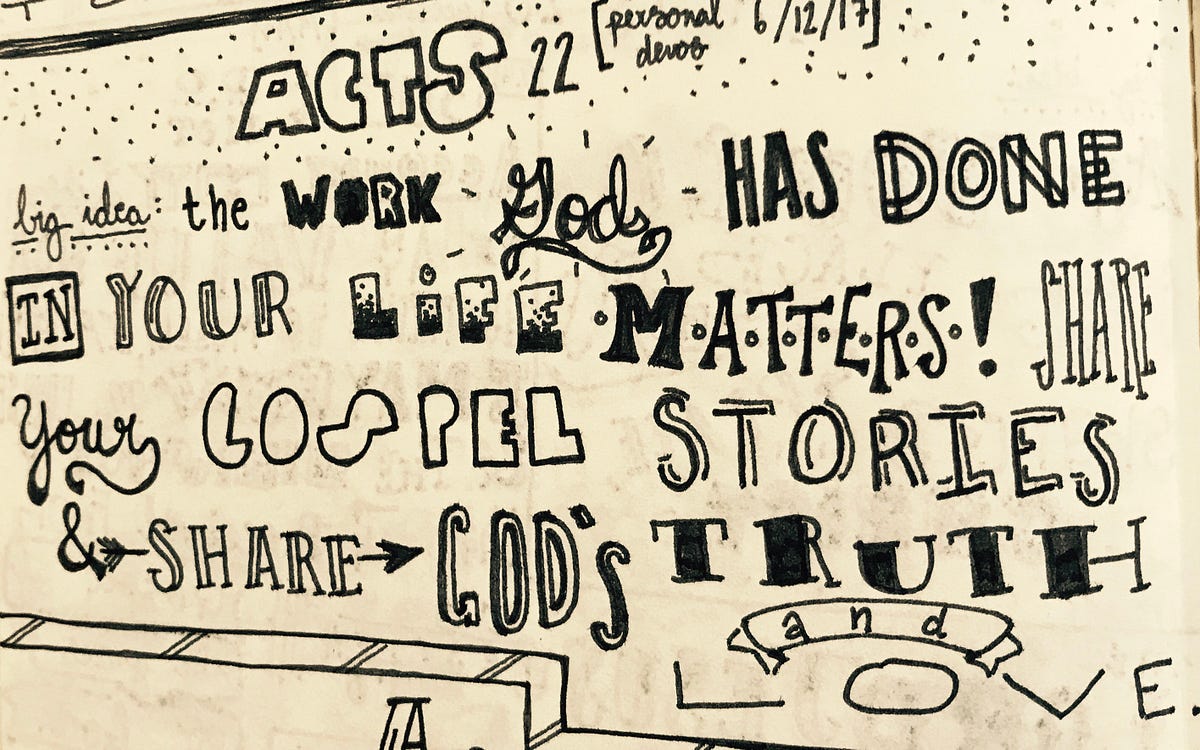 ACTS 22 [personal devos 6/12/17]
big idea: the WORK - God - HAS DONE
IN YOUR LiFE • M•A•T•T•E•R•S•! SHARE
Your GOSPEL STORIES
& SHARE GOD'S TRUTH
and
LOVE.
A.